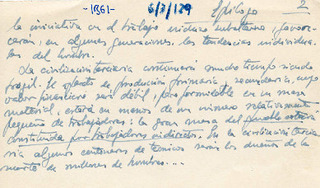 -1861- 6/3/129 Epílogo 2
la iniciativa en el trabajo
cerán, en algunas generaciones, las tendencias individua-
les del hombre.
La civilización terciaria continuará mucho tiempo siendo
fragil. El aparato de producción primaria, secundaria, cuyo
valor financiero es débil, pero formidable en su masa
material, estará en manos de un número relativamente
pequeño de trabajadores: la gran masa del pueblo estará
constituida por trabajadores indirectos. En la civilización terciaria
sia algunos centenares de técnicos serán los dueños de la
muerte de millones de hombres...